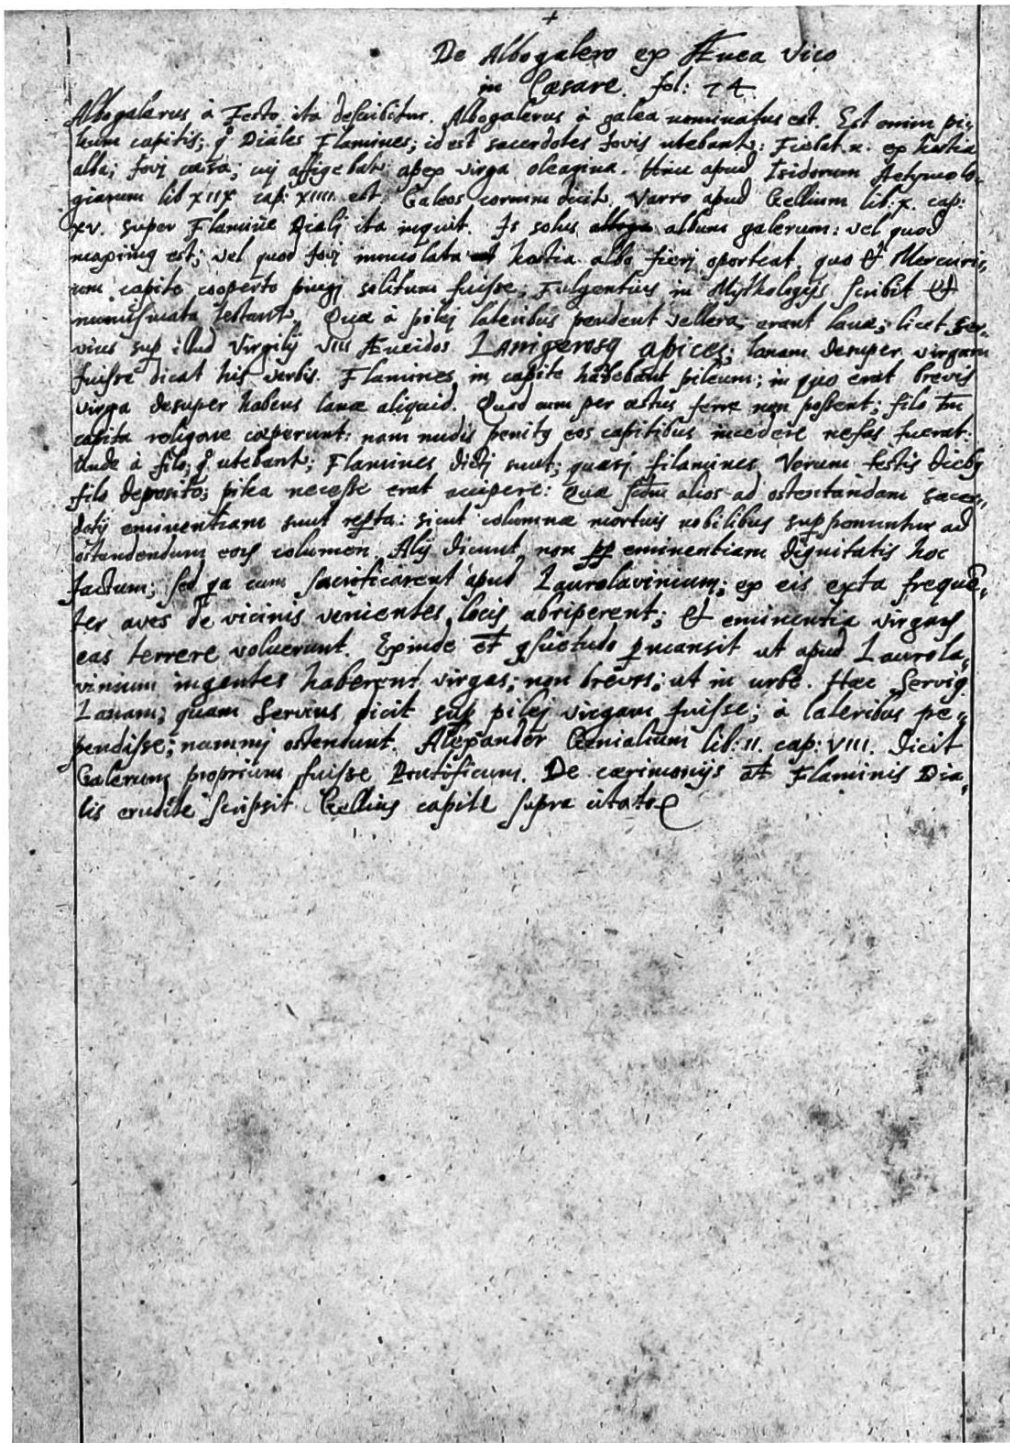 +
De Albogalero ex Ænea Vico
in Cæsare. fol: 74.
Albogalerus à Festo ita describitur. Albogalerus à galea nominatus est. Est enim pi-
leum capitis; q° Diales Flamines; id est sacerdotes Jovis utebant: Fiebat n. ex hostia
alba; Jovi cæsa; cui affigebat apex virga oleagina. Hinc apud Isidorum Aetymolo-
giarum lib XIIX cap: XIIII est. Galeos corium dicit. Varro apud Gellium lib: X. cap:
XV. super Flamine Diali ita inquit. Is solus album galerum: vel quod
maximus est; vel quod Jovi immolata hostia alba fieri oporteat, quo & Mercuri-
um capite cooperto pingi solitum fuisse; Fulgentius in Mythologijs scribit &
numismata testant. Quæ à pilei lateribus pendent vellera, erant lanæ; licet Ser-
vius sup illud Virgilij VIII Æneidos Lanigerosq apices; lanam desuper virgam
fuisse dicat his verbis. Flamines in capite habebant pileum; in quo erat brevis
virga desuper habens lanæ aliquid. Quod cum per æstus ferre non possent; filo tm
capita religare cæperunt: nam nudis penitq eos capitibus incedere nefas fuerat.
Unde à filo; q° utebant; Flamines dicti sunt; quasi filamines. Verum festis diebq
filo deposito; pilea necesse erat accipere: Quæ scdm alios ad ostentandam sacer-
dotij eminentiam sunt reperta: sicut columnæ mortuis nobilibus supponuntur ad
ostendendum eorum columen. Alij dicunt non pp eminentiam dignitatis hoc
factum; sed qa cum sacrificarent apud Laurolavinium; ex eis exta freque-
ter aves de vicinis venientes locis abriperent; & eminentia virgarum
eas terrere voluerunt. Exinde et gsuetudo pmansit ut apud Laurola-
vinium ingentes haberent virgas; non breves; ut in urbe. Hæc Serviq
Lanam; quam Servius dicit sup pilei virgam fuisse; à lateribus pe-
pendisse; nummi ostendunt. Alexander Genialium lib: II. cap: VIII. dicit
Galerum proprium fuisse Pontificum. De cærimonijs at Flaminis Dia-
lis erudite scripsit Gellius capite supra citato